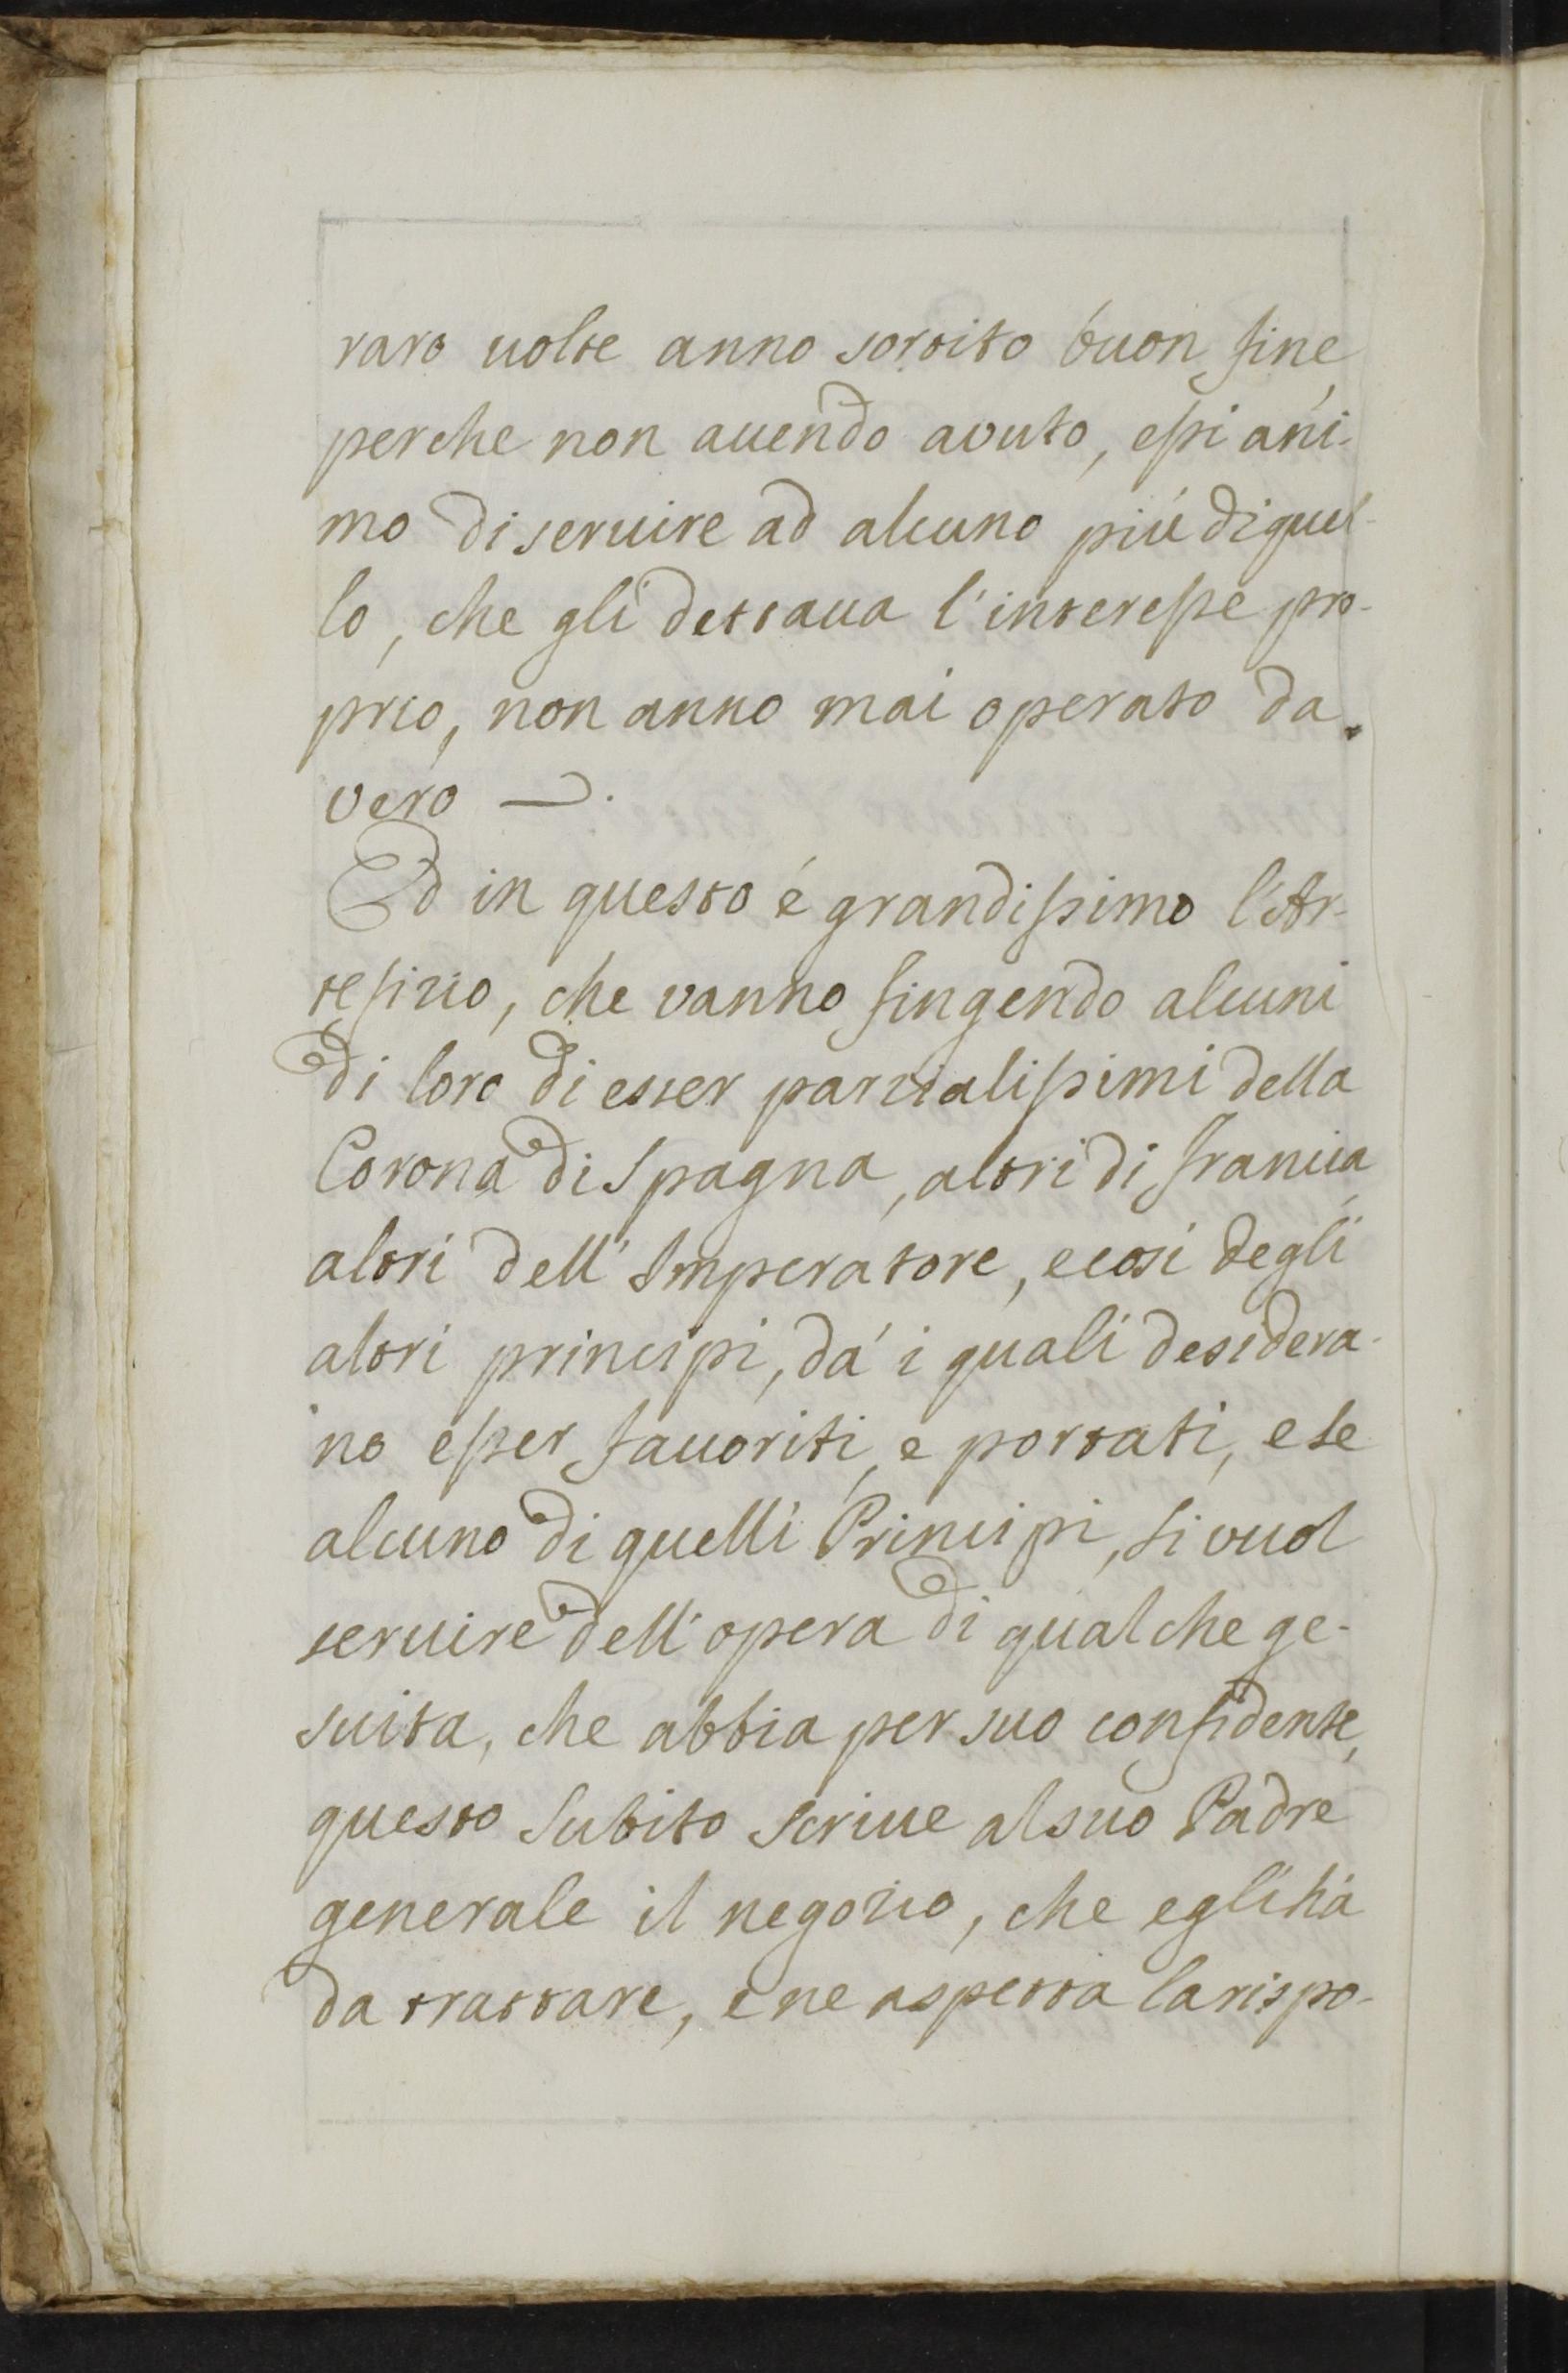 raro uolte anno sortito buon fine,
perche non auendo avuto, essi ani-
mo di seruire ad alcuno piú di quel-
lo, che gli dettaua l'interesse pro-
prio, non anno mai operato da.
vero —.
Ed in questo é grandissimo l'Ar-
tefizio, che vanno fingendo alcuni
di loro di esser parzialissimi della
Corona di Spagna, altri di francia,
altri dell' Imperatore, e cosí degli
altri principi, dá i quali desidera-
no esser fauoriti, e portati, e se
alcuno di quelli Principi, si vuol
seruire dell' opera di qualche ge-
suita, che abbia per suo confidente,
questo subito scriue al suo Padre
generale il negozio, che egli há
da trattare, e ne aspetta la rispo-